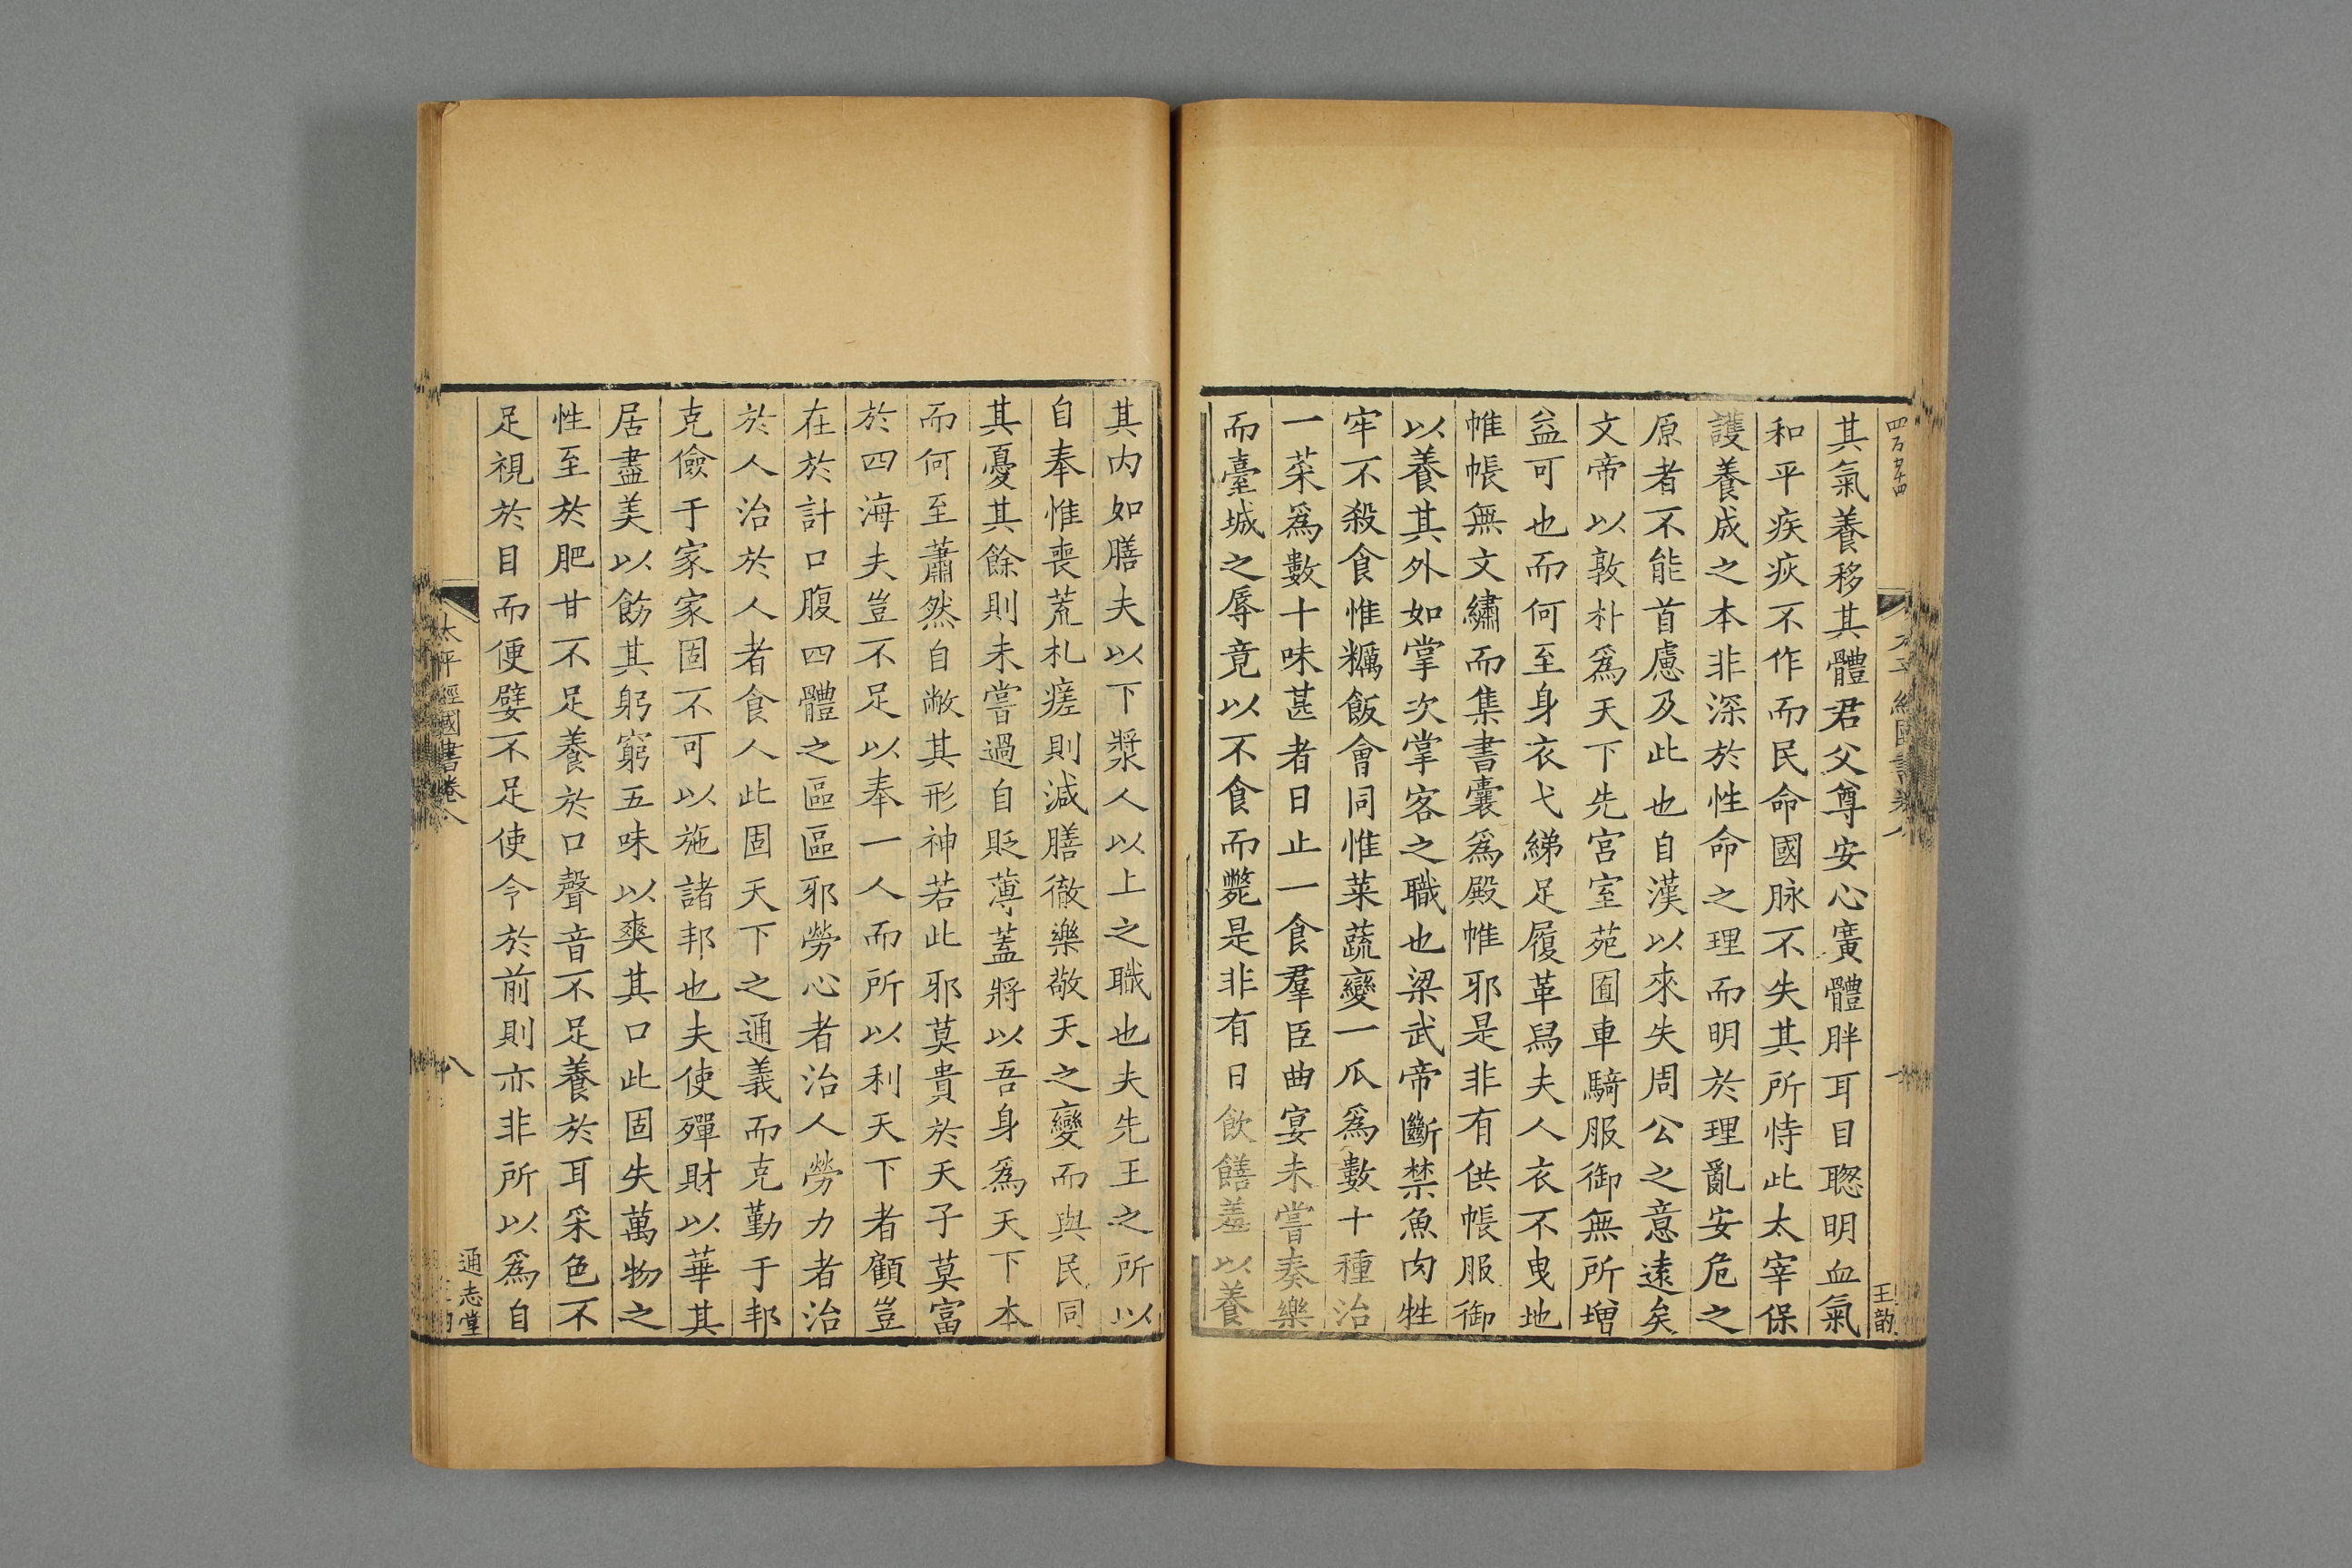 其氣養移其體君父尊安心廣體胖耳目聦明血氣
和平疾疢不作而民命國脉不失其所恃此太宰保
護養成之本非深於性命之理而明於理亂安危之
原者不能首慮及此也自漢以來失周公之意遠矣
文帝以敦朴爲天下先宮室苑囿車騎服御無所增
益可也而何至身衣弋綈足履革舄夫人衣不曳地
帷帳無文繡而集書囊爲殿帷邪是非有供帳服御
以養其外如掌次掌客之職也梁武帝斷禁魚肉牲
牢不殺食惟糲飯會同惟菜蔬變一瓜爲數十種治
一菜爲數十味甚者日止一食羣臣曲宴未嘗奏樂
而臺城之辱竟以不食而斃是非有日飲饍羞以養
其内如膳夫以下漿人以上之職也夫先王之所以
自奉惟喪荒札瘥則減膳徹樂敬天之變而與民同
其憂其餘則未嘗過自貶薄蓋將以吾身爲天下本
而何至蕭然自敝其形神若此邪莫貴於天子莫富
於四海夫豈不足以奉一人而所以利天下者顧豈
在於計口腹四體之區區邪勞心者治人勞力者治
於人治於人者食人此固天下之通義而克勤于邦
克儉于家家固不可以施諸邦也夫使殫財以華其
居盡美以飭其躬窮五味以爽其口此固失萬物之
性至於肥甘不足養於口聲音不足養於耳采色不
足視於目而便嬖不足使令於前則亦非所以爲自
太平經國書卷八
八
通志堂